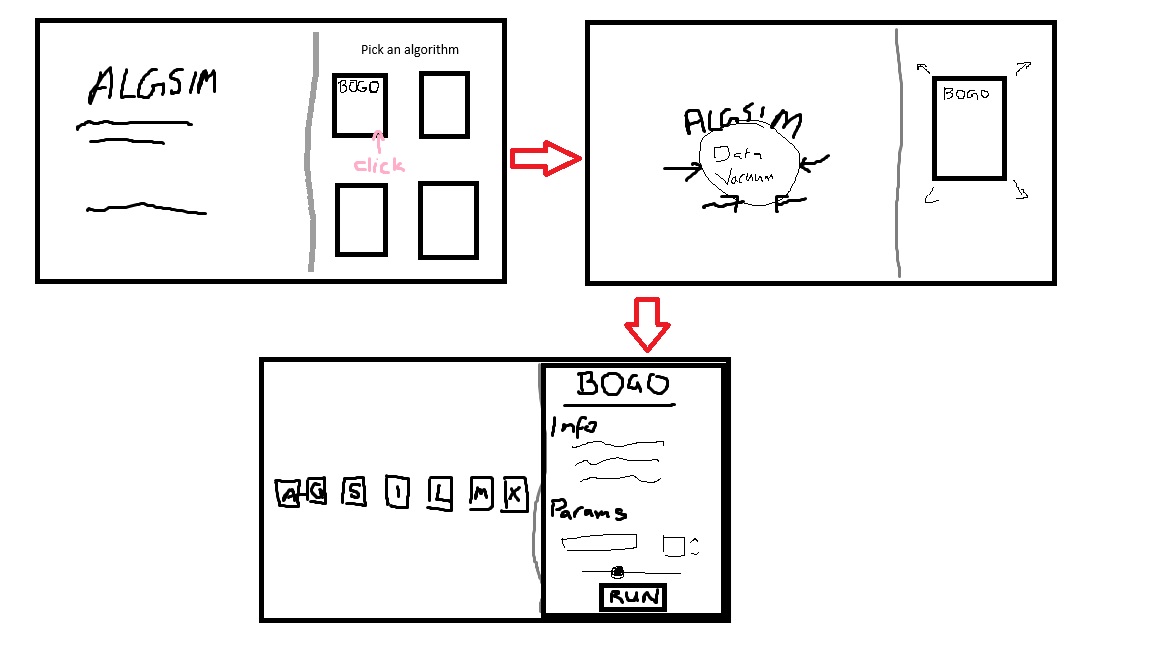 ALGSIM
Pick an algorithm
BOGO
click
ALGSIM
Data
Vacuum
BOGO
A G S I L M X
BOGO
Info
Params
RUN